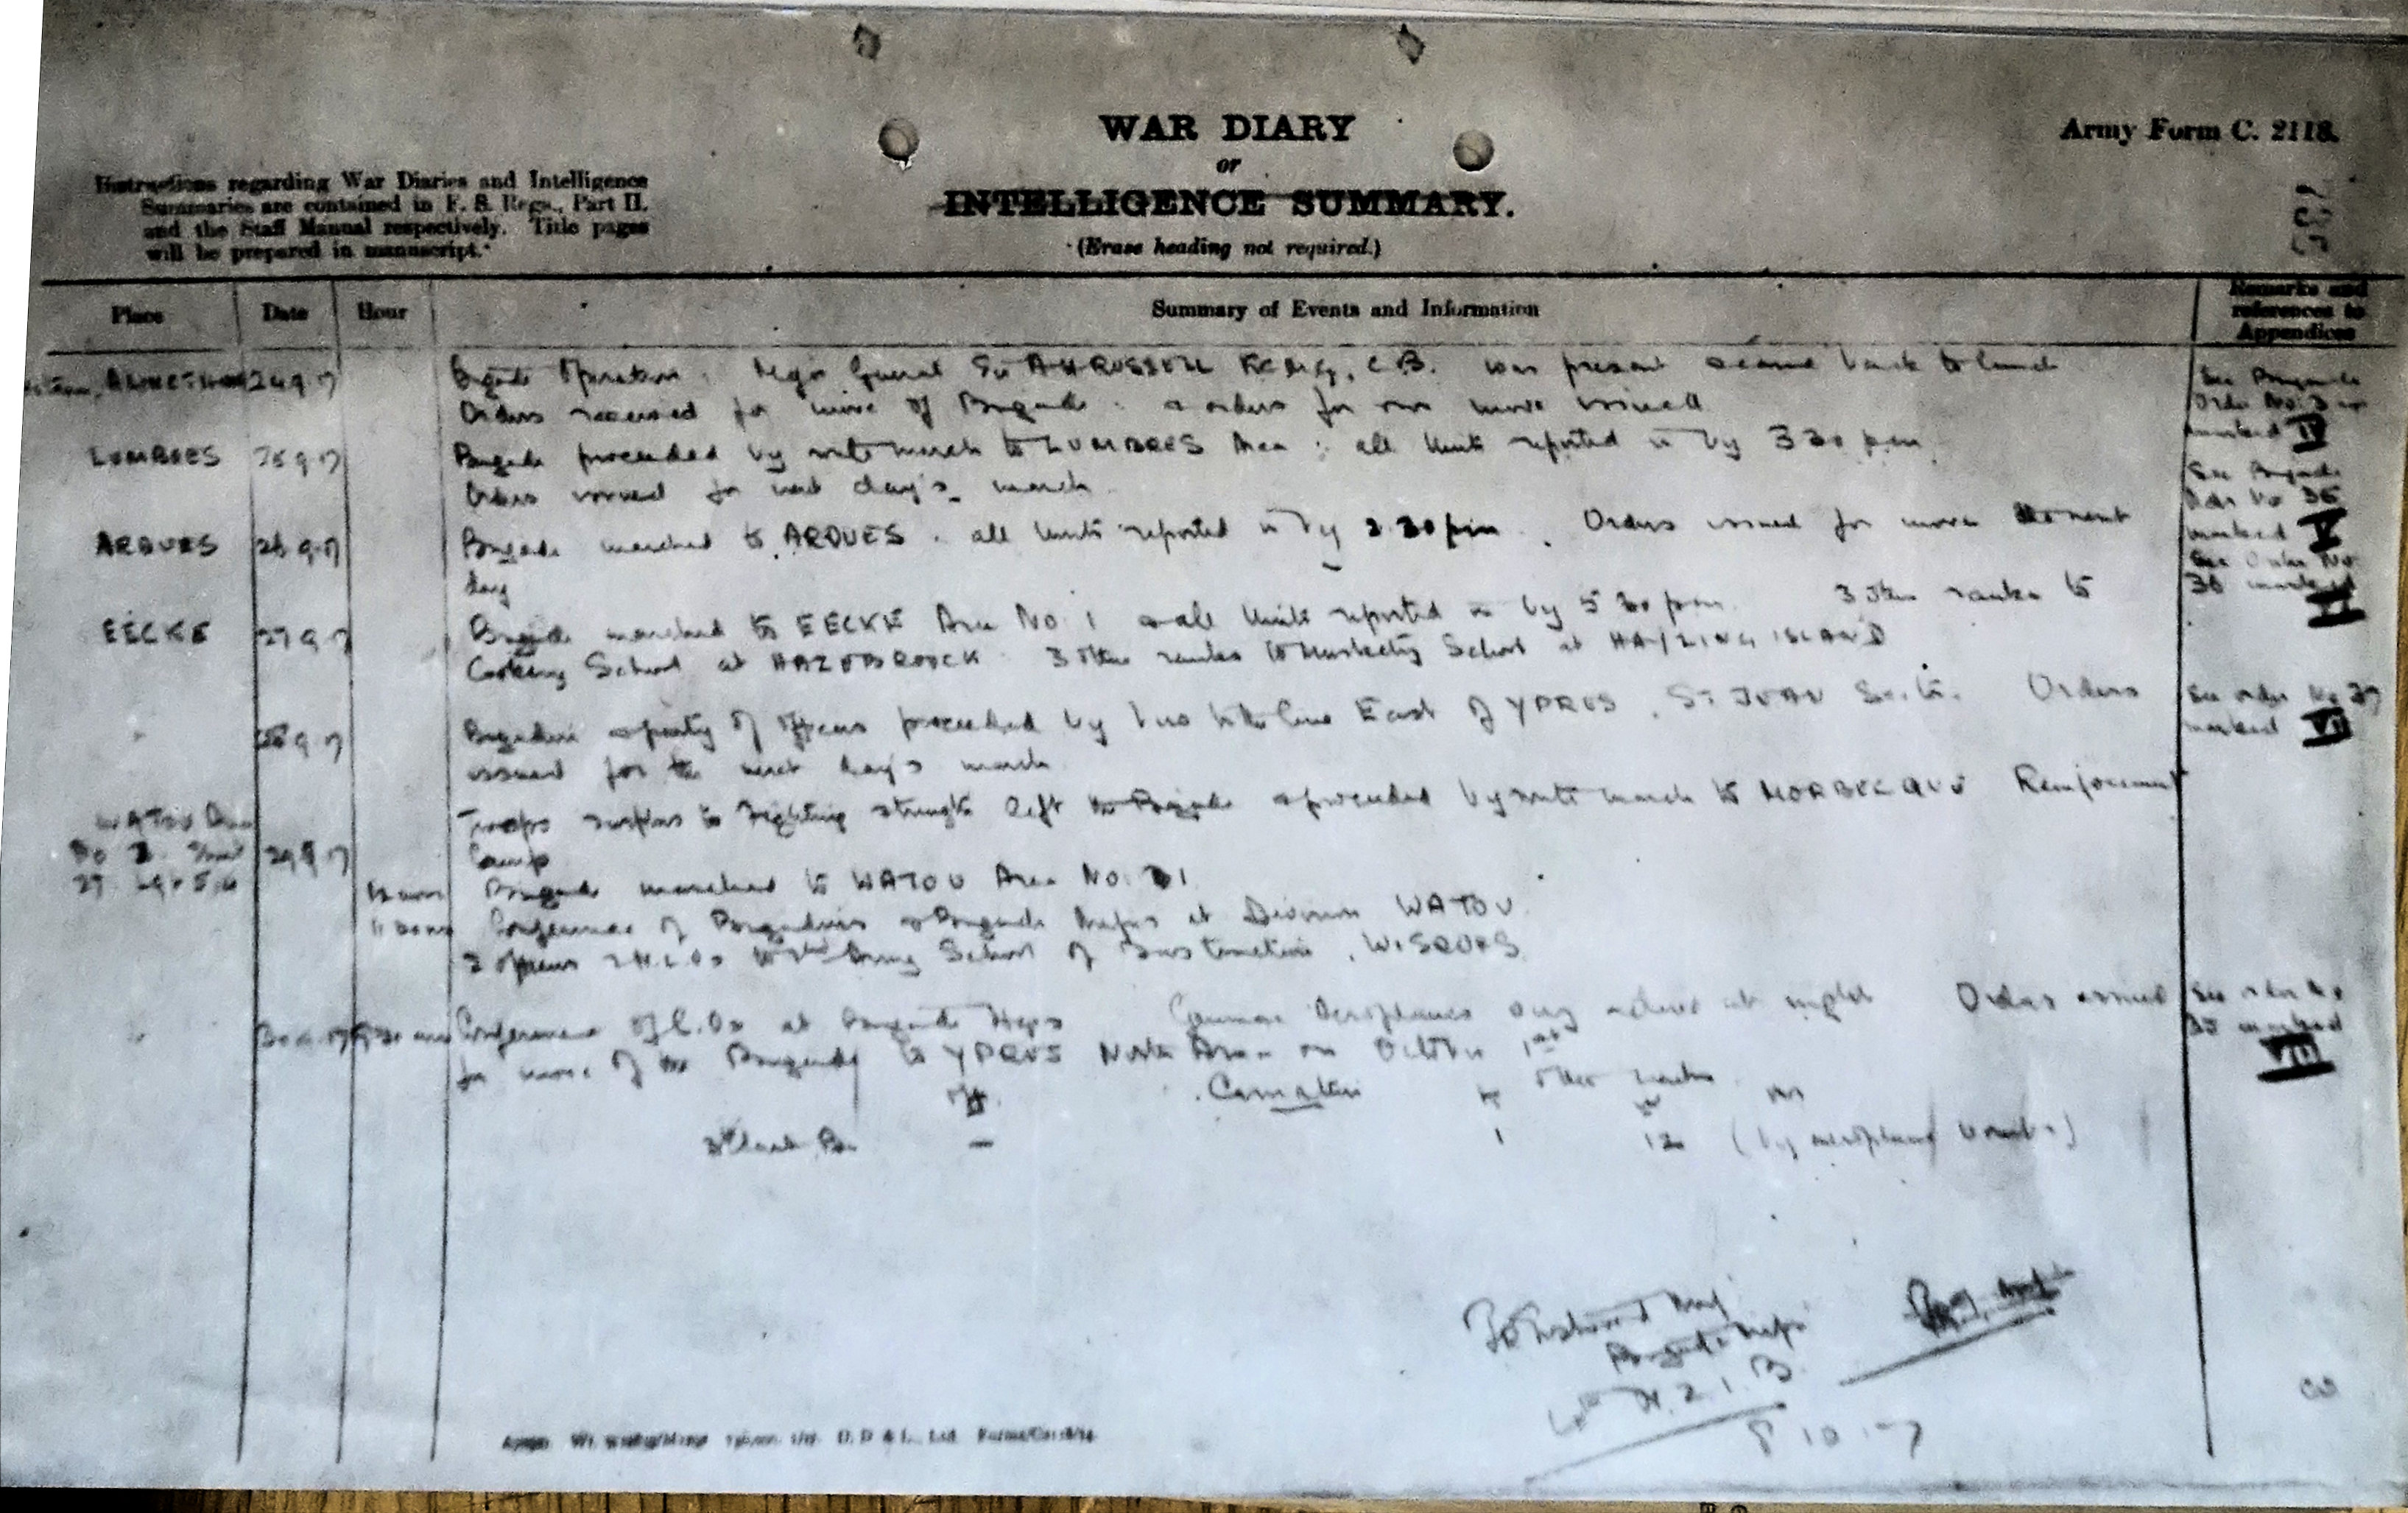 WAR DIARY
or
INTELLIGENCE SUMMARY.
(Erase heading not required.)
Army Form C. 2118.
Instructions regarding War Diaries and Intelligence
Summaries are contained in F. S. Regs., Part II.
and the Staff Manual respectively. Title pages
will be prepared in manuscript.
Place
Date
Hour
Summary of Events and Information
Remarks and
references to
Appendices
24.9.17
Brigade Operation. Major General Sir A H RUSSELL KCMG, C.B. was present & came back to lunch
Orders received for move of Brigade & orders for our move issued
See Brigade
Order No.
marked IV
LUMBRES
25.9.17
Brigade proceeded by route march to LUMBRES Area : all Units reported in by 3 30 pm
Orders issued for next day's march
See Brigade
Order No 35
marked V
ARQUES
26.9.17
Brigade marched to ARQUES. all Units reported in by 2.30 pm. Orders issued for move next
day
See Order No
36 marked
VI
EECKE
27.9.17
Brigade marched to EECKE Area No. 1 & all Units reported in by 5 30 pm. 3 other ranks to
Cooking School at HAZEBROUCK. 3 other ranks to Musketry School at HAYLING ISLAND
28.9.17
Brigadier & party of officers proceeded by bus to the line East of YPRES, St JEAN Sector. Orders
issued for the next day's march
See order No 37
marked VII
WATOU Area
29.9.17
Troops surplus to fighting strength left the Brigade & proceeded by route march to MORBECQUE Reinforcement
Camp
Brigade marched to WATOU Area No. 1
Conference of Brigadiers & Brigade Majors at Division WATOU
2 officers 2 N.C.Os to Army School of Instruction, WISQUES
30.9.17
Conference of C.Os at Brigade Hqrs German Aeroplanes very active at night Orders issued
for move of the Brigade to YPRES North Area on October 1st
See order No
marked
VIII
Casualties
other ranks
K W M
– 1 12 (by aeroplane bombs)
Brigade Major
4th N.Z.I.B.
8 10 17